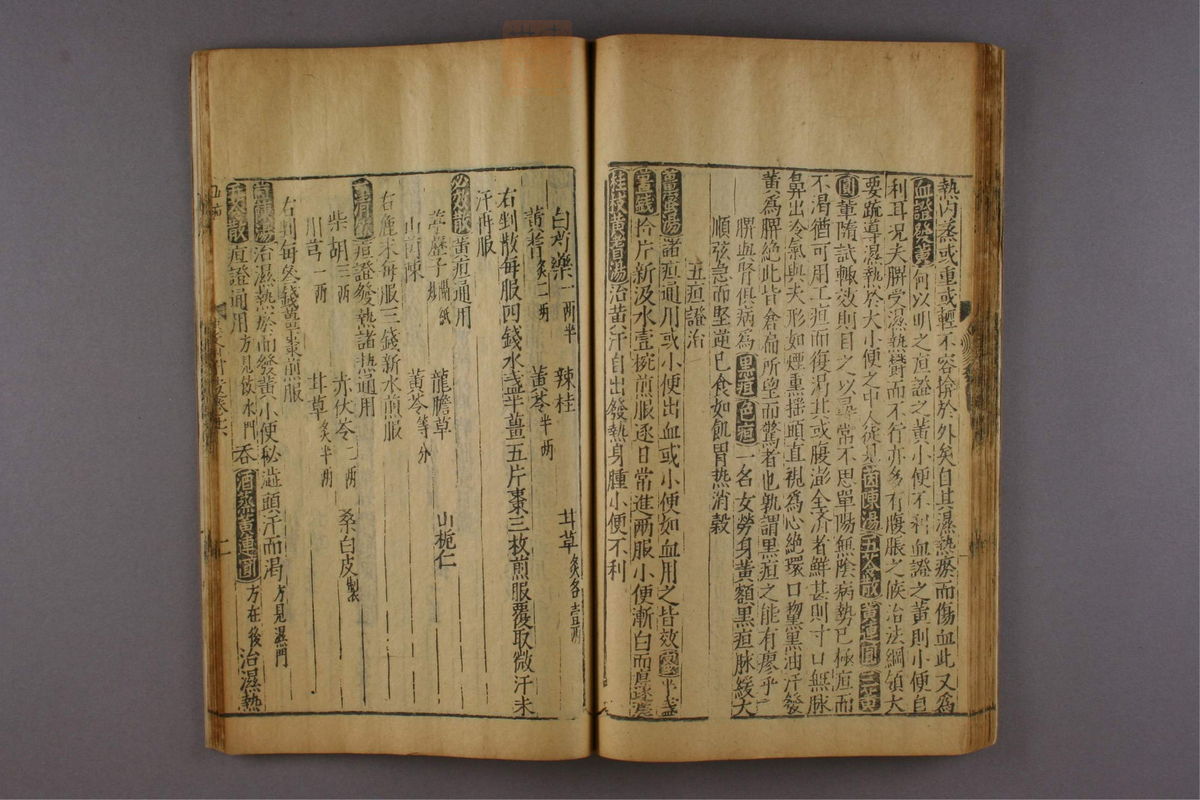 熱內蒸或重或輕不容揜於外矣自其濕熱瘀而傷血此又為
血證發黃何以明之疸證之黃小便不利血證之黃則小便自
利耳況夫脾受濕熱鬱而不行亦多有腹脹之候治法綱領大
要疏導濕熱於大小便之中人徒見茵陳湯五苓散黃連圓三黃
圓輩隨試輒效則目之以尋常不思單陽無陰病勢已極疸而
不渴猶可用工疸而復渴其或腹澎全濟者鮮甚則寸口無脉
鼻出冷氣與夫形如煙熏搖頭直視為心絕環口黧黑油汗發
黃為脾絕此皆倉扁所望而驚者也孰謂黑疸之能有瘳乎
脾與腎俱病為黑疸色疸一名女勞身黃額黑疸脉緩大
順弦急而堅逆已食如飢胃熱消穀
五疸證治
諸疸通用或小便出血或小便如血用之皆效
拾片新汲水壹椀煎服逐日常進兩服小便漸白而疸
桂枝黃耆湯治黃汗自出發熱身腫小便不利
白芍藥一兩半 辣桂 甘草炙各壹兩
黃耆炙二兩 黃芩半兩
右剉散每服四錢水盞半薑五片棗三枚煎服覆取微汗未
汗再服
必效散黃疸通用
葶歷子隔紙炒 龍膽草 山梔仁
山茵陳 黃芩等分
右麄末每服三錢新水煎服
疸證發熱諸熱通用
柴胡三兩 赤伏苓二兩 桑白皮製
川芎一兩 甘草炙半兩
右剉每叁錢薑棗煎服
治濕熱瘀而發黃小便秘澁頭汗而渴方見濕門
五苓散疸證通用方見飲水門吞酒蒸黃連圓方在後治濕熱